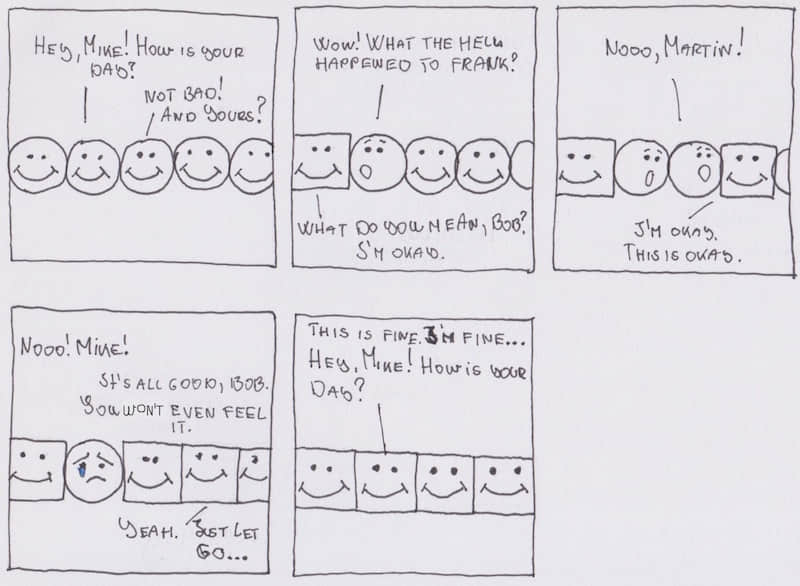 HEY, MIKE! HOW IS YOUR
DAY?
NOT BAD!
AND YOURS?
WOW! WHAT THE HELL
HAPPENED TO FRANK?
WHAT DO YOU MEAN, BOB?
I'M OKAY.
NOOO, MARTIN!
I'M OKAY.
THIS IS OKAY.
NOOO! MIKE!
IT'S ALL GOOD, BOB.
YOU WON'T EVEN FEEL
IT.
YEAH. JUST LET
GO...
THIS IS FINE. I'M FINE...
HEY, MIKE! HOW IS YOUR
DAY?